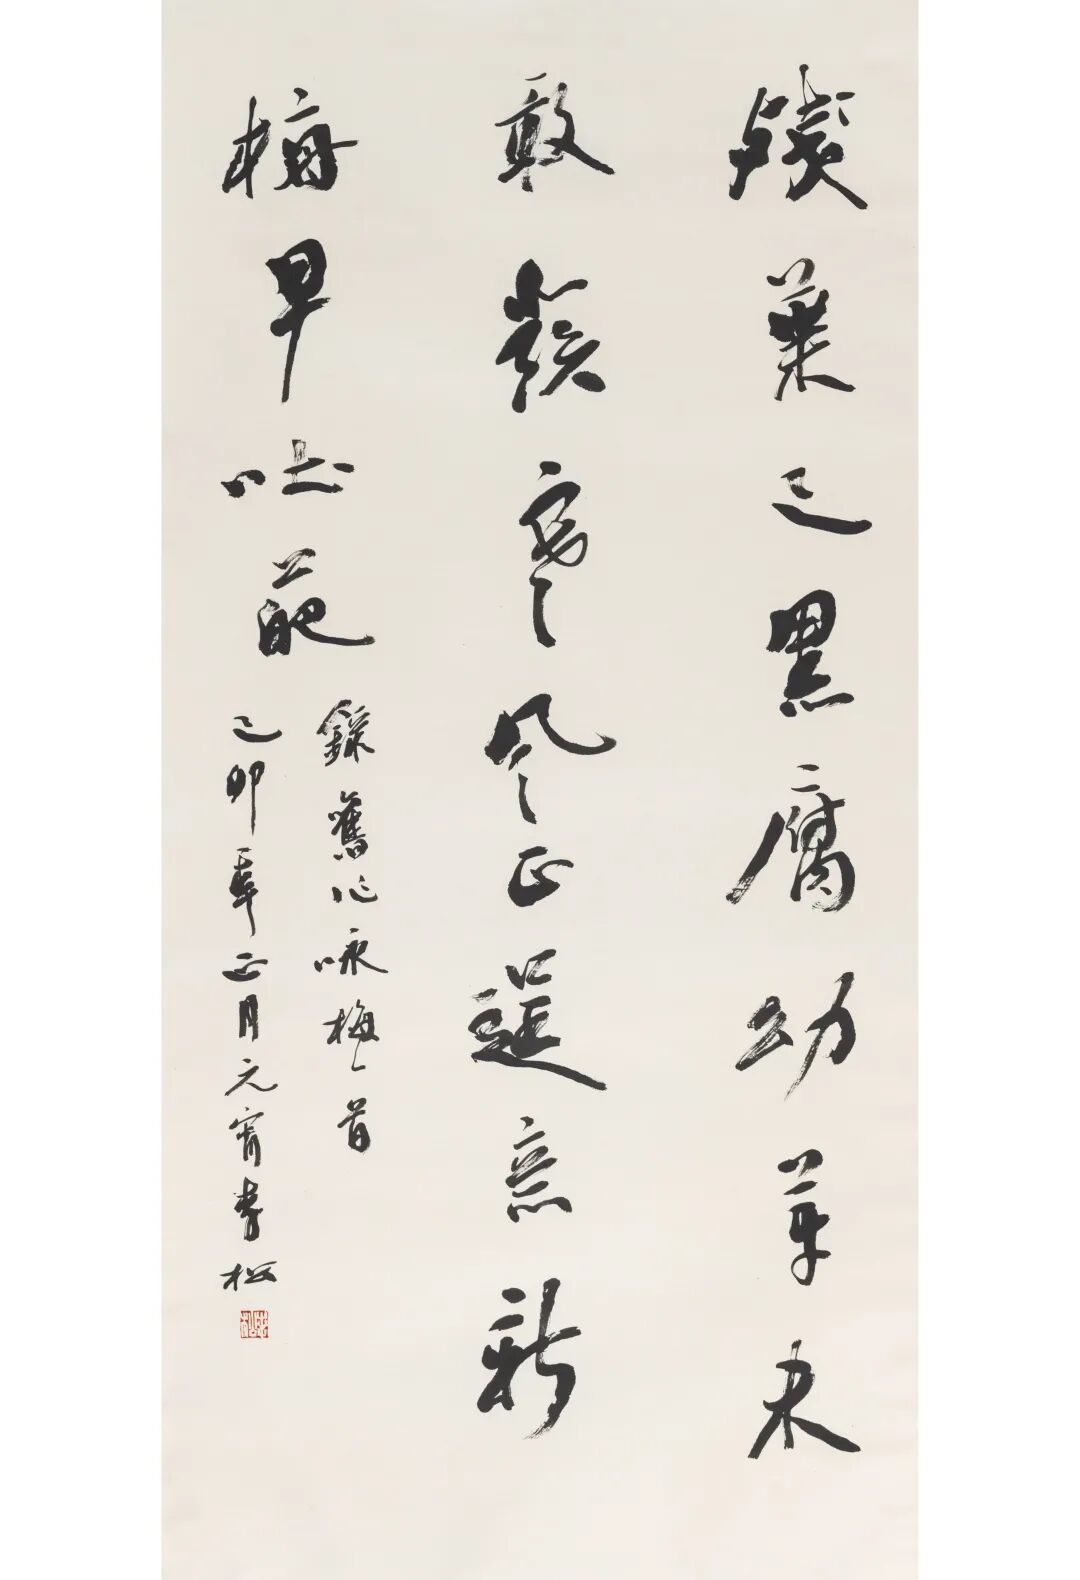 殘葉已黑腐幼芽未
敢發寒風正意新
梅早吐葩
錄舊作咏梅一首
己卯年正月元宵松